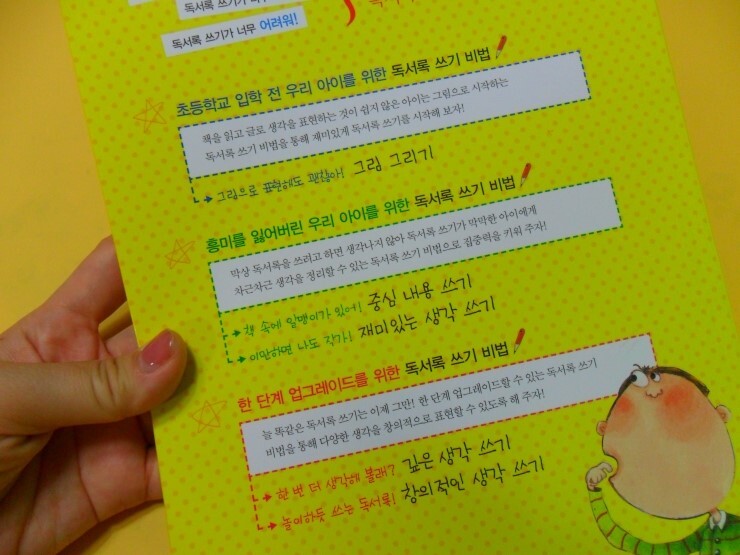 독서록 쓰기가 너무
독서록 쓰기가 너무 어려워!
초등학교 입학 전 우리 아이를 위한 독서록 쓰기 비법
책을 읽고 글로 생각을 표현하는 것이 쉽지 않은 아이는 그림으로 시작하는
독서록 쓰기 비법을 통해 재미있게 독서록 쓰기를 시작해 보자!
그림으로 표현해도 괜찮아! 그림 그리기
흥미를 잃어버린 우리 아이를 위한 독서록 쓰기 비법
막상 독서록을 쓰려고 하면 생각나지 않아 독서록 쓰기가 막막한 아이에게
차근차근 생각을 정리할 수 있는 독서록 쓰기 비법으로 집중력을 키워 주자!
책 속에 알맹이가 있어! 중심 내용 쓰기
이만하면 나도 작가! 재미있는 생각 쓰기
한 단계 업그레이드를 위한 독서록 쓰기 비법
늘 똑같은 독서록 쓰기는 이제 그만! 한 단계 업그레이드할 수 있는 독서록 쓰기
비법을 통해 다양한 생각을 창의적으로 표현할 수 있도록 해 주자!
한 번 더 생각해 볼래? 깊은 생각 쓰기
놀이하듯 쓰는 독서록! 창의적인 생각 쓰기